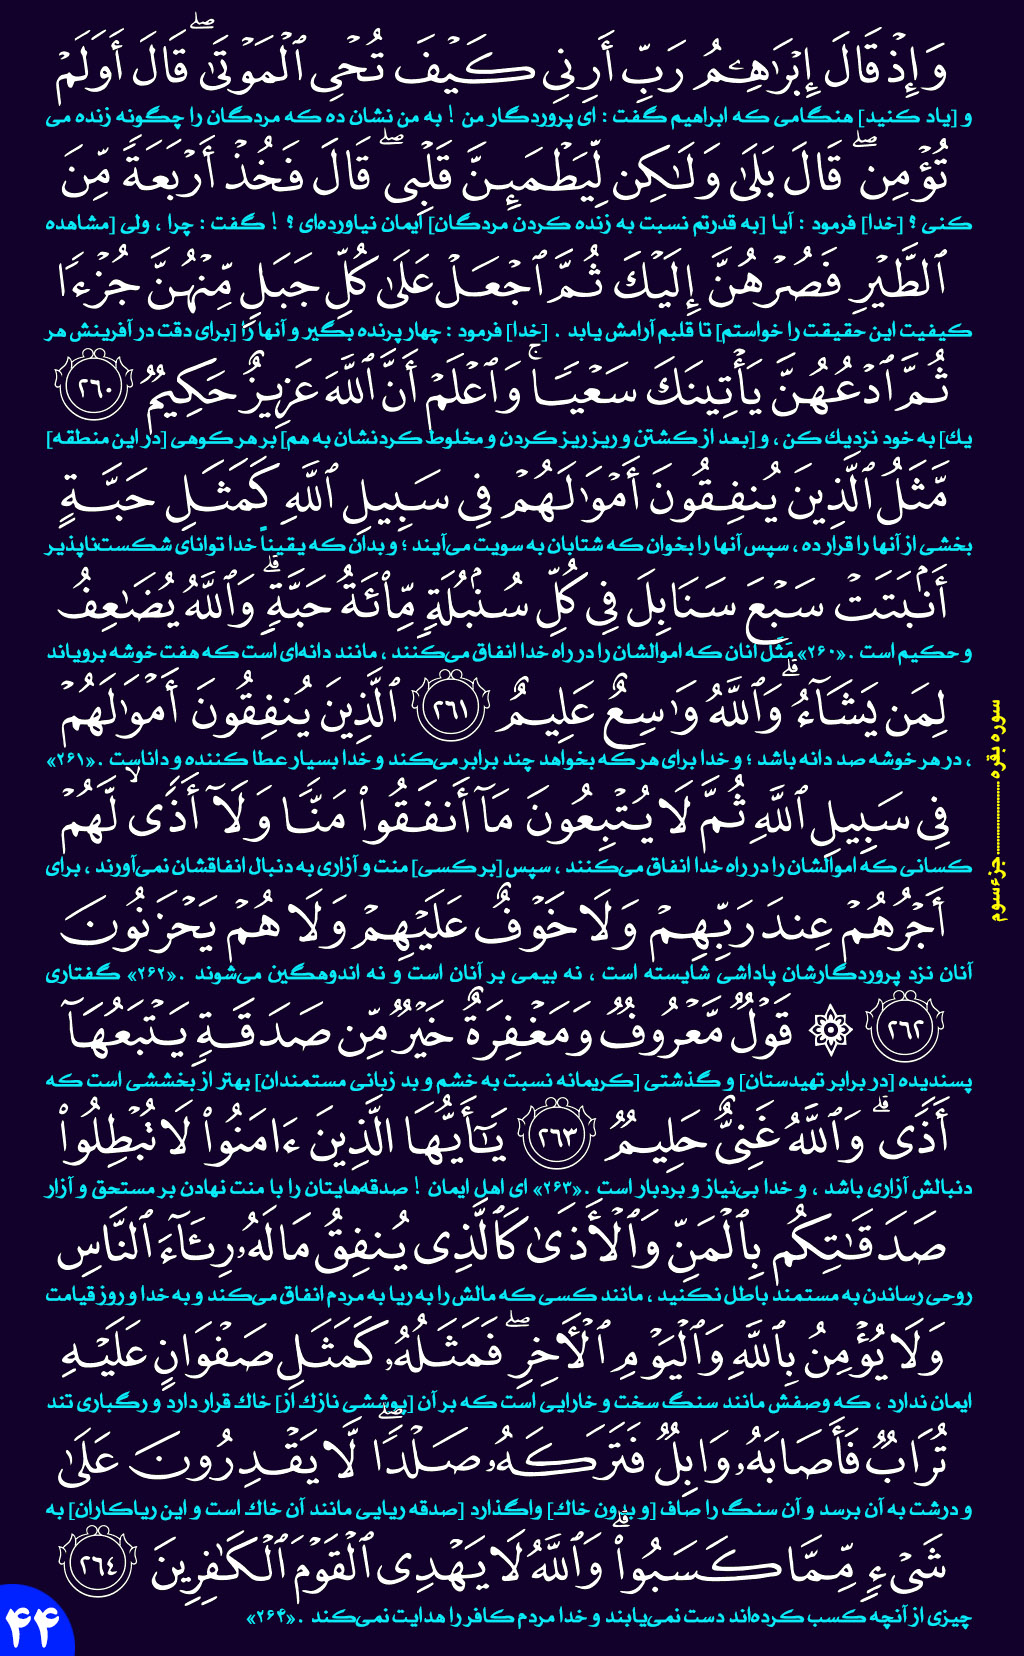 وَإِذْ قَالَ إِبْرَٰهِـۧمُ رَبِّ أَرِنِى كَيْفَ تُحْىِ ٱلْمَوْتَىٰ ۖ قَالَ أَوَلَمْ
و [یاد کنید] هنگامی که ابراهیم گفت : ای پروردگار من ! به من نشان ده که مردگان را چگونه زنده می
تُؤْمِن ۖ قَالَ بَلَىٰ وَلَـٰكِن لِّيَطْمَئِنَّ قَلْبِى ۖ قَالَ فَخُذْ أَرْبَعَةً مِّنَ
کنی ؟ [خدا] فرمود : آیا [به قدرتم نسبت به زنده کردن مردگان] ایمان نیاورده‌ای ؟ ! گفت : چرا ، ولی [مشاهده
ٱلطَّيْرِ فَصُرْهُنَّ إِلَيْكَ ثُمَّ ٱجْعَلْ عَلَىٰ كُلِّ جَبَلٍ مِّنْهُنَّ جُزْءًا
کیفیت این حقیقت را خواستم] تا قلبم آرامش یابد . [خدا] فرمود : چهار پرنده بگیر و آنها را [برای دقت در آفرینش هر
ثُمَّ ٱدْعُهُنَّ يَأْتِينَكَ سَعْيًا ۚ وَٱعْلَمْ أَنَّ ٱللَّهَ عَزِيزٌ حَكِيمٌ ٢٦٠
یك] به خود نزدیك کن ، و [بعد از کشتن و ریز ریز کردن و مخلوط کردنشان به هم] بر هر کوهی [در این منطقه]
مَّثَلُ ٱلَّذِينَ يُنفِقُونَ أَمْوَٰلَهُمْ فِى سَبِيلِ ٱللَّهِ كَمَثَلِ حَبَّةٍ
بخشی از آنها را قرار ده ، سپس آنها را بخوان که شتابان به سویت می‌آیند ؛ و بدان که یقیناً خدا توانای شکست‌ناپذیر
أَنۢبَتَتْ سَبْعَ سَنَابِلَ فِى كُلِّ سُنۢبُلَةٍ مِّا۟ئَةُ حَبَّةٍ ۗ وَٱللَّهُ يُضَـٰعِفُ
و حکیم است .«۲۶۰» مَثَل آنان که اموالشان را در راه خدا انفاق می‌کنند ، مانند دانه‌ای است که هفت خوشه برویاند
لِمَن يَشَآءُ ۗ وَٱللَّهُ وَٰسِعٌ عَلِيمٌ ٢٦١ ٱلَّذِينَ يُنفِقُونَ أَمْوَٰلَهُمْ
، در هر خوشه صد دانه باشد ؛ و خدا برای هر که بخواهد چند برابر می‌کند و خدا بسیار عطا کننده و داناست .«۲۶۱»
فِى سَبِيلِ ٱللَّهِ ثُمَّ لَا يُتْبِعُونَ مَآ أَنفَقُوا۟ مَنًّا وَلَآ أَذًى ۙ لَّهُمْ
کسانی که اموالشان را در راه خدا انفاق می‌کنند ، سپس [بر کسی] منت و آزاری به دنبال انفاقشان نمی‌آورند ، برای
أَجْرُهُمْ عِندَ رَبِّهِمْ وَلَا خَوْفٌ عَلَيْهِمْ وَلَا هُمْ يَحْزَنُونَ
آنان نزد پروردگارشان پاداشی شایسته است ، نه بیمی بر آنان است و نه اندوهگین می‌شوند .«۲۶۲» گفتاری
٢٦٢ ۞ قَوْلٌ مَّعْرُوفٌ وَمَغْفِرَةٌ خَيْرٌ مِّن صَدَقَةٍ يَتْبَعُهَآ
پسندیده [در برابر تهیدستان] و گذشتی [کریمانه نسبت به خشم و بد زبانی مستمندان] بهتر از بخششی است که
أَذًى ۗ وَٱللَّهُ غَنِىٌّ حَلِيمٌ ٢٦٣ يَـٰٓأَيُّهَا ٱلَّذِينَ ءَامَنُوا۟ لَا تُبْطِلُوا۟
دنبالش آزاری باشد ، و خدا بی‌نیاز و بردبار است .«۲۶۳» ای اهل ایمان ! صدقه‌هایتان را با منت نهادن بر مستحق و آزار
صَدَقَـٰتِكُم بِٱلْمَنِّ وَٱلْأَذَىٰ كَٱلَّذِى يُنفِقُ مَالَهُۥ رِئَآءَ ٱلنَّاسِ
روحی رساندن به مستمند باطل نکنید ، مانند کسی که مالش را به ریا به مردم انفاق می‌کند و به خدا و روز قیامت
وَلَا يُؤْمِنُ بِٱللَّهِ وَٱلْيَوْمِ ٱلْـَٔاخِرِ ۖ فَمَثَلُهُۥ كَمَثَلِ صَفْوَانٍ عَلَيْهِ
ایمان ندارد ، که وصفش مانند سنگ سخت و خارایی است که بر آن [پوششی نازك از] خاك قرار دارد و رگباری تند
تُرَابٌ فَأَصَابَهُۥ وَابِلٌ فَتَرَكَهُۥ صَلْدًا ۖ لَّا يَقْدِرُونَ عَلَىٰ
و درشت به آن برسد و آن سنگ را صاف [و بدون خاك] واگذارد [صدقه ریایی مانند آن خاك است و این ریاکاران] به
شَىْءٍ مِّمَّا كَسَبُوا۟ ۗ وَٱللَّهُ لَا يَهْدِى ٱلْقَوْمَ ٱلْكَـٰفِرِينَ ٢٦٤
چیزی از آنچه کسب کرده‌اند دست نمی‌یابند و خدا مردم کافر را هدایت نمی‌کند .«۲۶۴»
سوره بقره .................... جزء سوم
۴۴